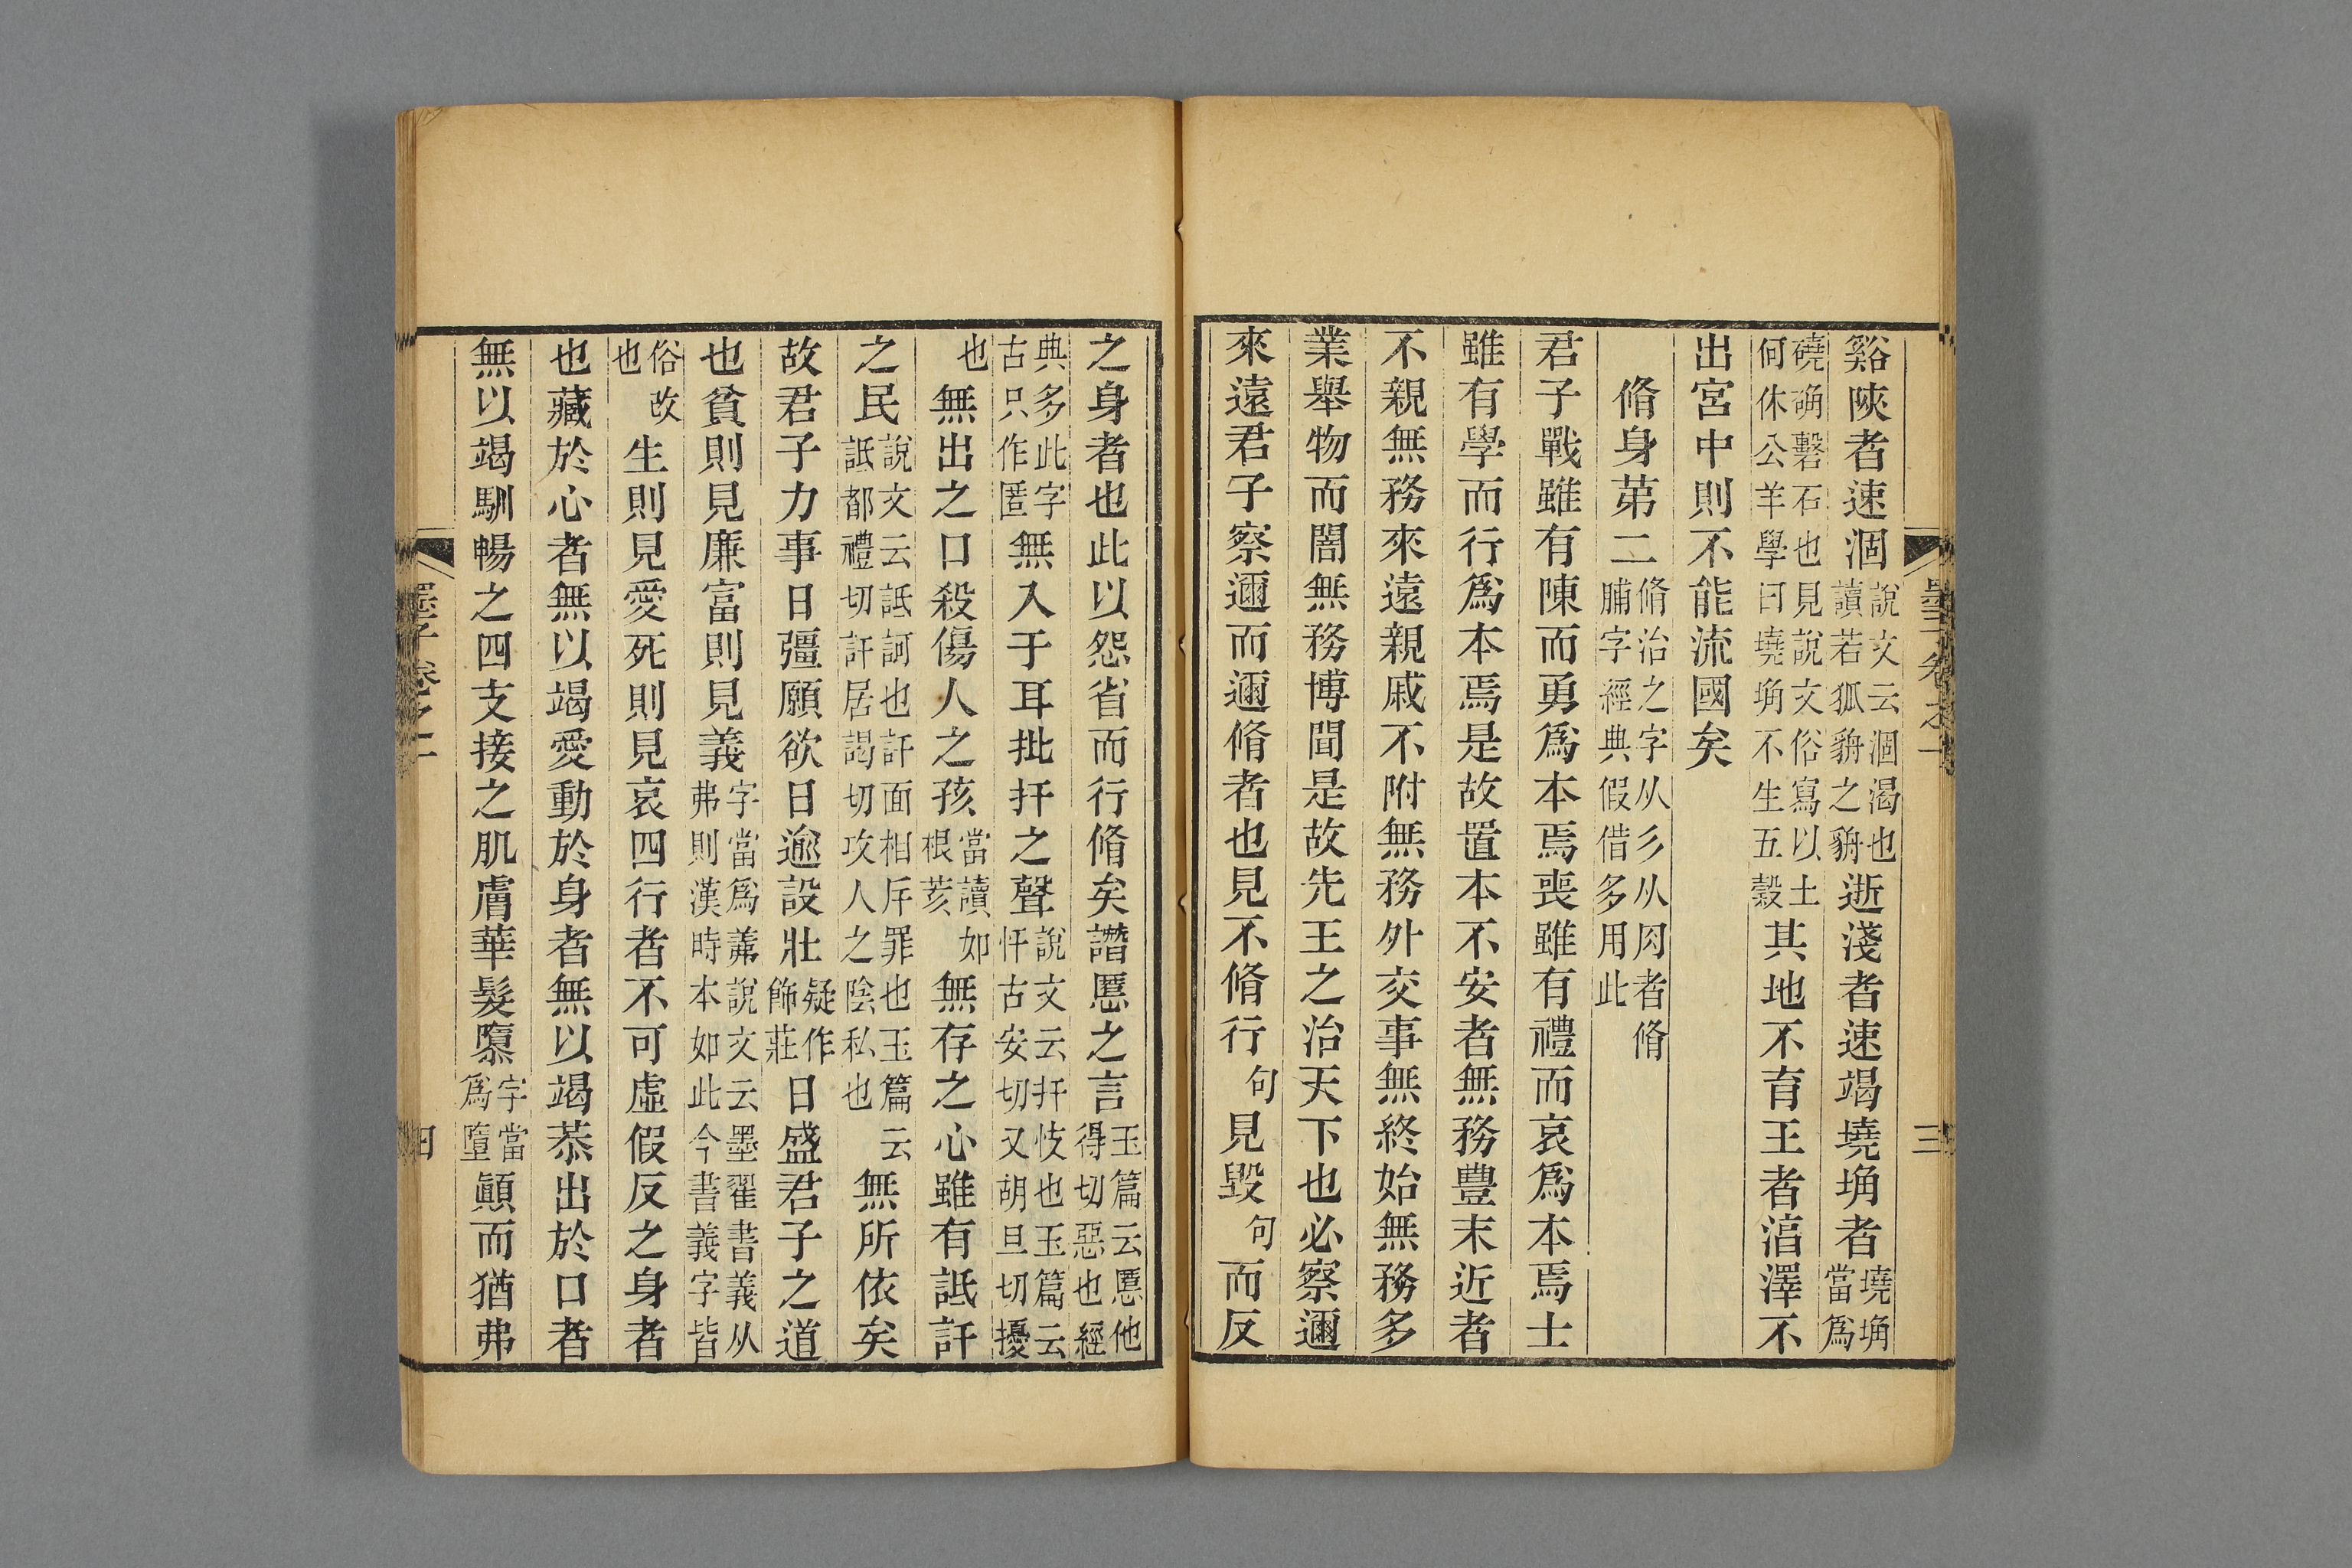 谿陝者速涸說文云涸渴也讀若狐貈之貈逝淺者速竭墝埆者墝埆當爲
磽确磬石也見說文俗寫以土何休公羊學曰墝埆不生五穀其地不育王者湻澤不
出宮中則不能流國矣
脩身第二脩治之字从彡从肉者脩脯字經典假借多用此
君子戰雖有陳而勇爲本焉喪雖有禮而哀爲本焉士
雖有學而行爲本焉是故置本不安者無務豐末近者
不親無務來遠親戚不附無務外交事無終始無務多
業舉物而闇無務博聞是故先王之治天下也必察邇
來遠君子察邇而邇脩者也見不脩行句見毀句而反
之身者也此以怨省而行脩矣譖慝之言玉篇云慝他得切惡也經
典多此字古只作匿無入于耳批扞之聲說文云扞忮也玉篇云忓古安切又胡旦切擾
也無出之口殺傷人之孩當讀如根荄無存之心雖有詆訐
之民說文云詆訶也訐面相斥罪也玉篇云詆都禮切訐居謁切攻人之陰私也無所依矣
故君子力事日彊願欲日逾設壯疑作飾莊日盛君子之道
也貧則見廉富則見義字當爲羛說文云墨翟書義从弗則漢時本如此今書義字皆
俗改也生則見愛死則見哀四行者不可虛假反之身者
也藏於心者無以竭愛動於身者無以竭恭出於口者
無以竭馴暢之四支接之肌膚華髮隳字當爲墮顚而猶弗
墨子卷之一
三
墨子卷之一
四